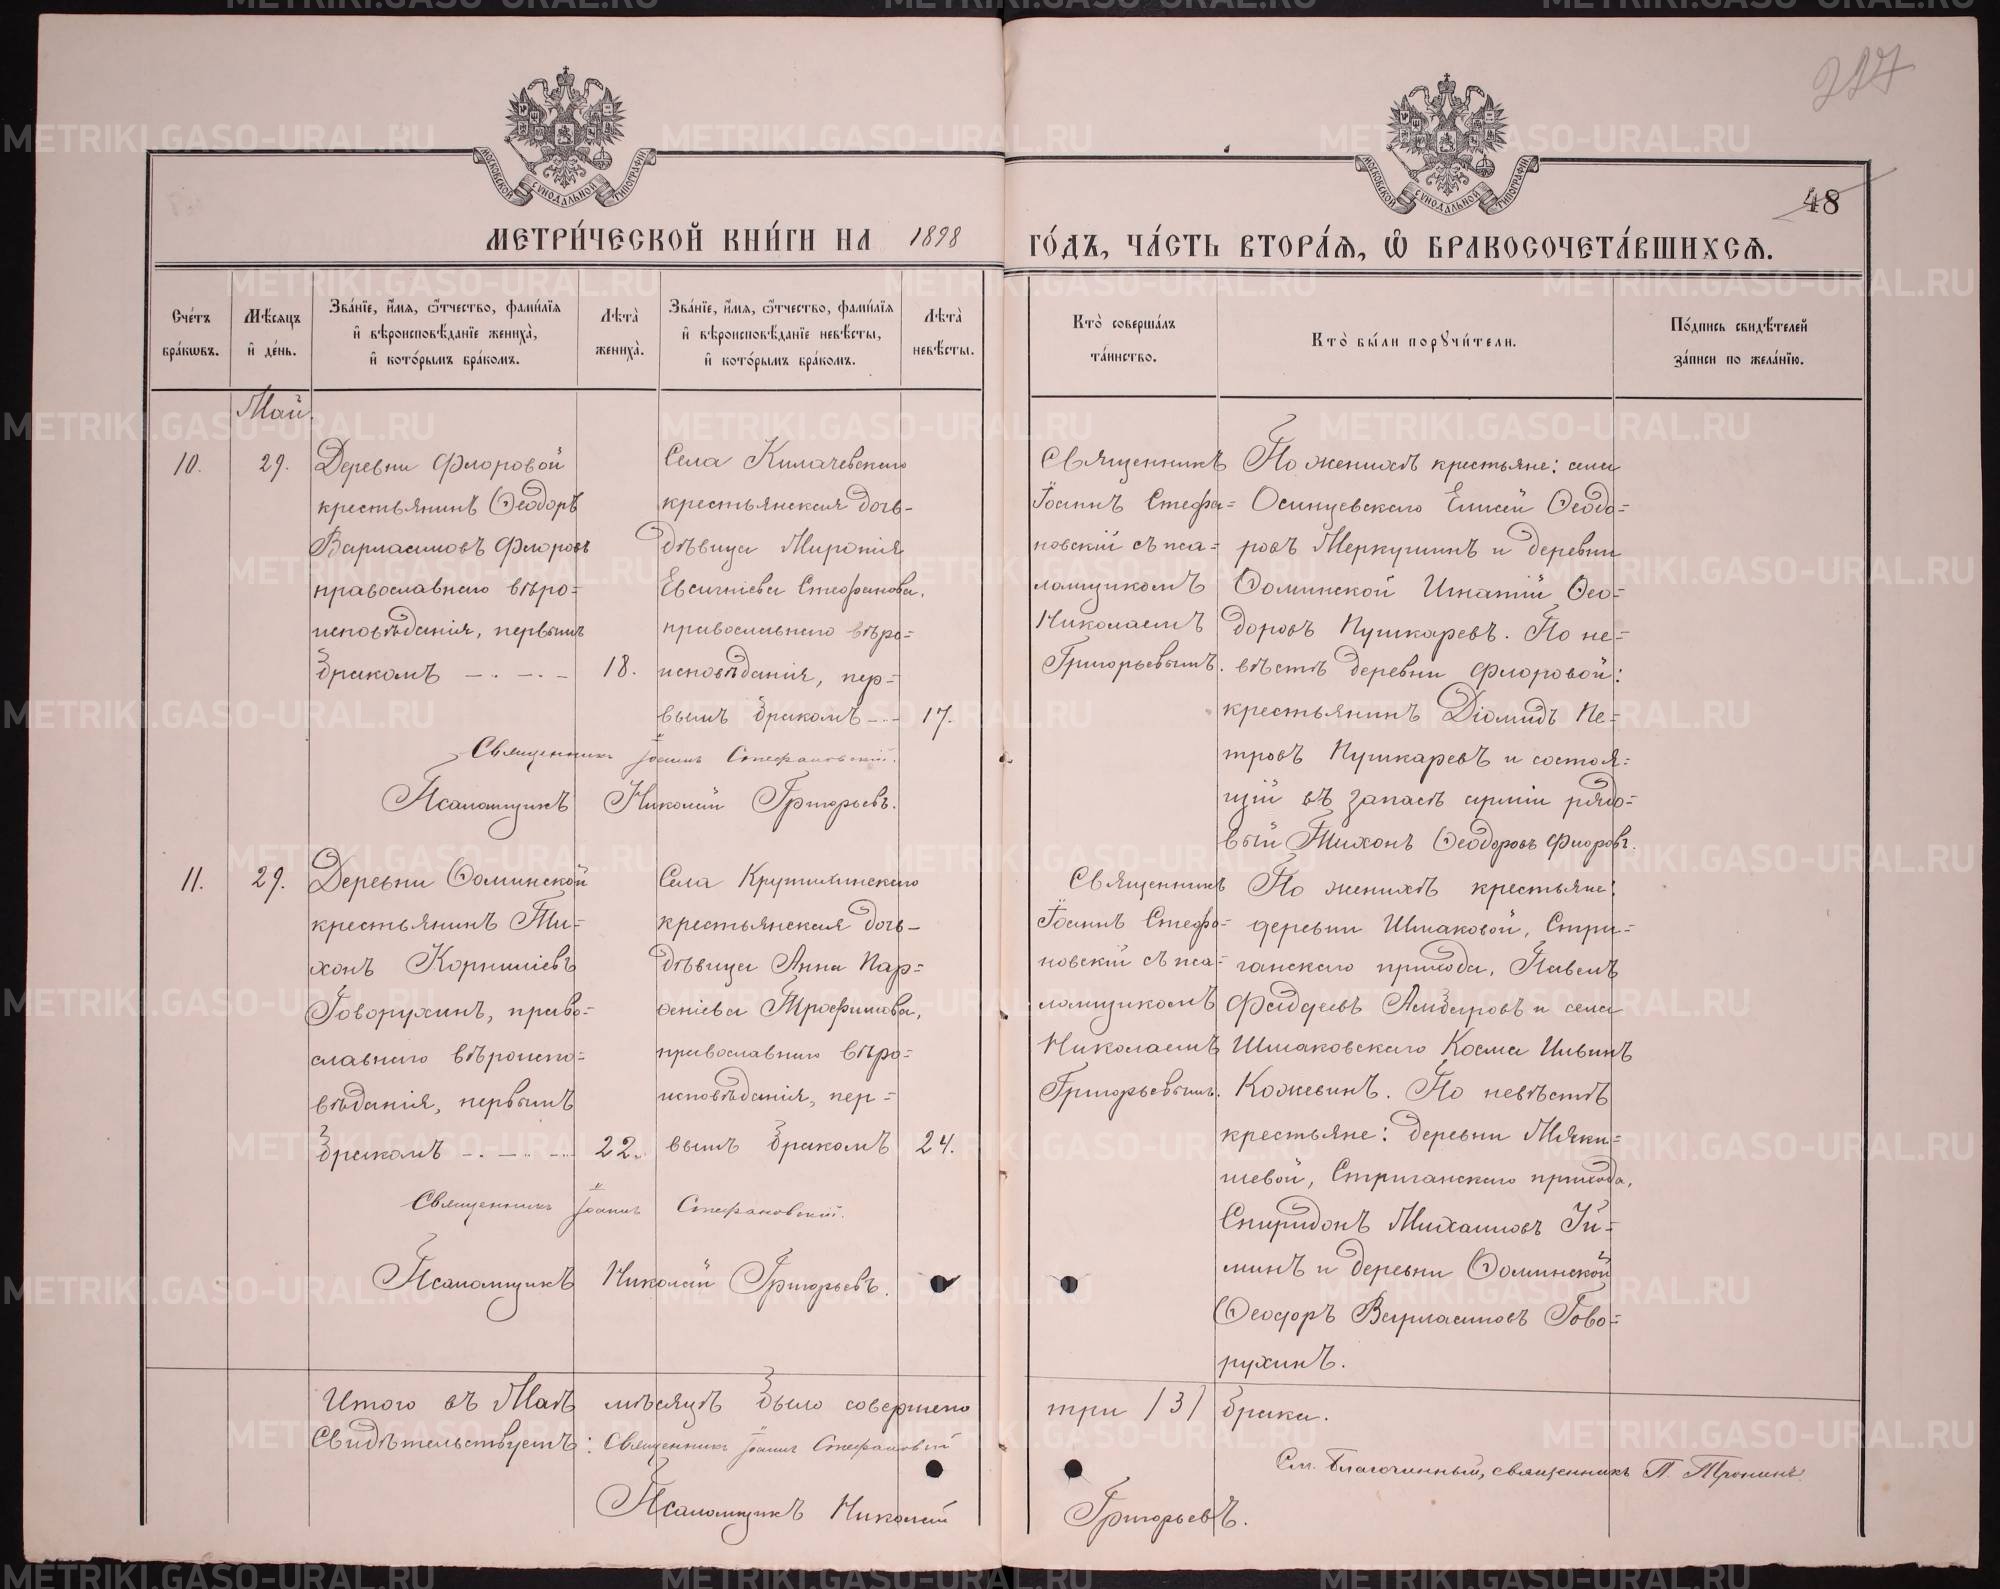 217
48
МОСКОВСКОЙ СѴНОДАЛЬНОЙ ТИПОГРАФІИ
МОСКОВСКОЙ СѴНОДАЛЬНОЙ ТИПОГРАФІИ
МЕТРИ́ЧЕСКОЙ КНИ́ГИ НА 1898 ГО́ДЪ, ЧА́СТЬ ВТОРА́Ѧ, Ѽ БРАКОСОЧЕТА́ВШИХСѦ.
Сче́тъ бра́кѡвъ.
Мѣ́сѧцъ и҆ де́нь.
Зва́нїе, и҆́мѧ, ѻ҆́тчество, фами́лїѧ и҆ вѣроисповѣ́данїе жениха̀, и҆ кото́рымъ бра́комъ.
Лѣ̑та̀ жениха̀.
Зва́нїе, и҆́мѧ, ѻ҆́тчество, фами́лїѧ и҆ вѣроисповѣ́данїе невѣ́сты, и҆ кото́рымъ бра́комъ.
Лѣ̑та̀ невѣ́сты.
Кто̀ соверша́лъ та́инство.
Кто̀ бы́ли порꙋчи́тели.
По́дпись свидѣ́телей за́писи по жела́нїю.
Май.
10.
29.
Деревни Флоровой
крестьянинъ Ѳеодоръ
Варласимовъ Флоровъ
православнаго вѣро=
исповѣданія, первымъ
бракомъ
18.
Села Килачевскаго
крестьянская дочь-
дѣвица Миропія
Евсигніева Стефанова,
православнаго вѣро=
исповѣданія, пер=
вымъ бракомъ
17.
Священникъ
Іоаннъ Стефа=
новскій съ пса=
ломщикомъ
Николаемъ
Григорьевымъ.
По женихѣ крестьяне: села
Осинцевскаго Елисей Ѳеодо=
ровъ Меркушинъ и деревни
Ѳоминской Игнатій Ѳео=
доровъ Пушкаревъ. По не=
вѣстѣ деревни Флоровой:
крестьянинъ Діомидъ Пе=
тровъ Пушкаревъ и состоя=
щій въ запасѣ арміи рядо=
вый Тихонъ Ѳеодоровъ Флоровъ.
Священникъ Іоаннъ Стефановскій.
Псаломщикъ Николай Григорьевъ.
11.
29.
Деревни Ѳоминской
крестьянинъ Ти=
хонъ Корниліевъ
Говорухинъ, право=
славнаго вѣроиспо=
вѣданія, первымъ
бракомъ
22.
Села Крутихинскаго
крестьянская дочь-
дѣвица Анна Пар=
ѳеніева Трофимова,
православнаго вѣро=
исповѣданія, пер=
вымъ бракомъ
24.
Священникъ
Іоаннъ Стефа=
новскій съ пса=
ломщикомъ
Николаемъ
Григорьевымъ.
По женихѣ крестьяне:
деревни Шмаковой, Стри=
ганскаго прихода, Павелъ
Фаддеевъ Амбаровъ и села
Шмаковскаго Косма Ильинъ
Кожевинъ. По невѣстѣ
крестьяне: деревни Мяки=
шевой, Стриганскаго прихода,
Спиридонъ Михаиловъ
и деревни Ѳоминской
Ѳеодоръ Варласимовъ Гово=
рухинъ.
Священникъ Іоаннъ Стефановскій.
Псаломщикъ Николай Григорьевъ.
Итого въ Маѣ мѣсяцѣ было совершено три /3/ брака.
Свидѣтельствуетъ: Священникъ Іоаннъ Стефановскій
См. Благочинный, священникъ П. Тронинъ
Псаломщикъ Николай Григорьевъ.
METRIKI.GASO-URAL.RU